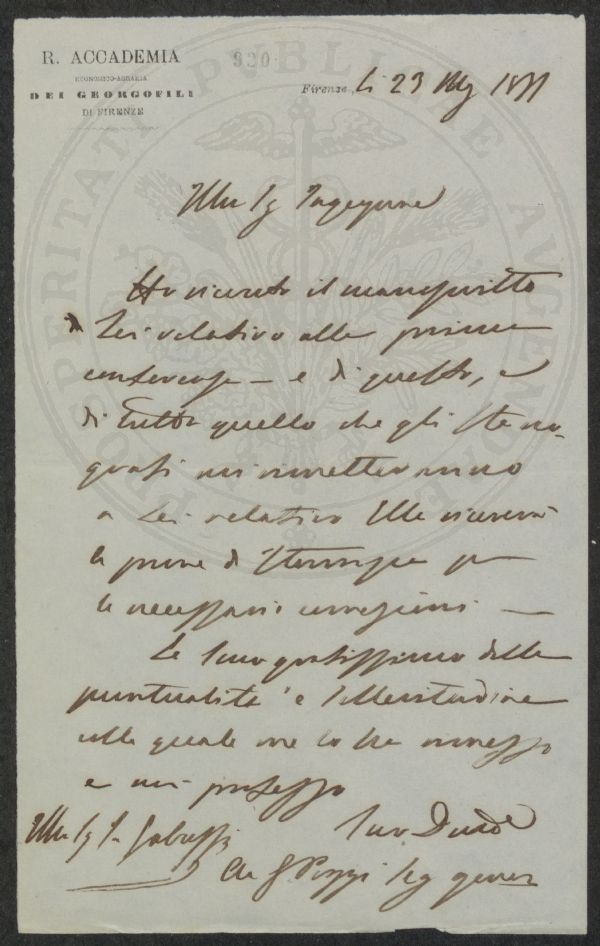 R. ACCADEMIA
ECONOMICO-AGRARIA
DEI GEORGOFILI
DI FIRENZE
930
Firenze, li 23 1871
PROSPERITATI PUBLICAE AUGENDAE
Ho ricevuto il manoscritto
di Lei relativo alla prima
conferenza – e di questo, e
di tutto quello che gli steno-
grafi mi rimetteranno
a Lei relativo Ella riceverà
le prove di Stamperia per
le necessarie correzioni –
Le sono gratissimo della
puntualità e sollecitudine
colla quale me lo ha rimesso
e mi professo
Suo Devo